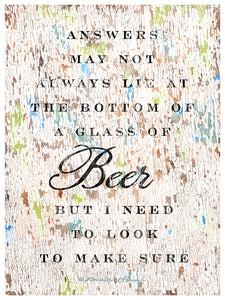 ANSWERS
MAY NOT
ALWAYS LIE AT
THE BOTTOM OF
A GLASS OF
Beer
BUT I NEED
TO LOOK
TO MAKE SURE